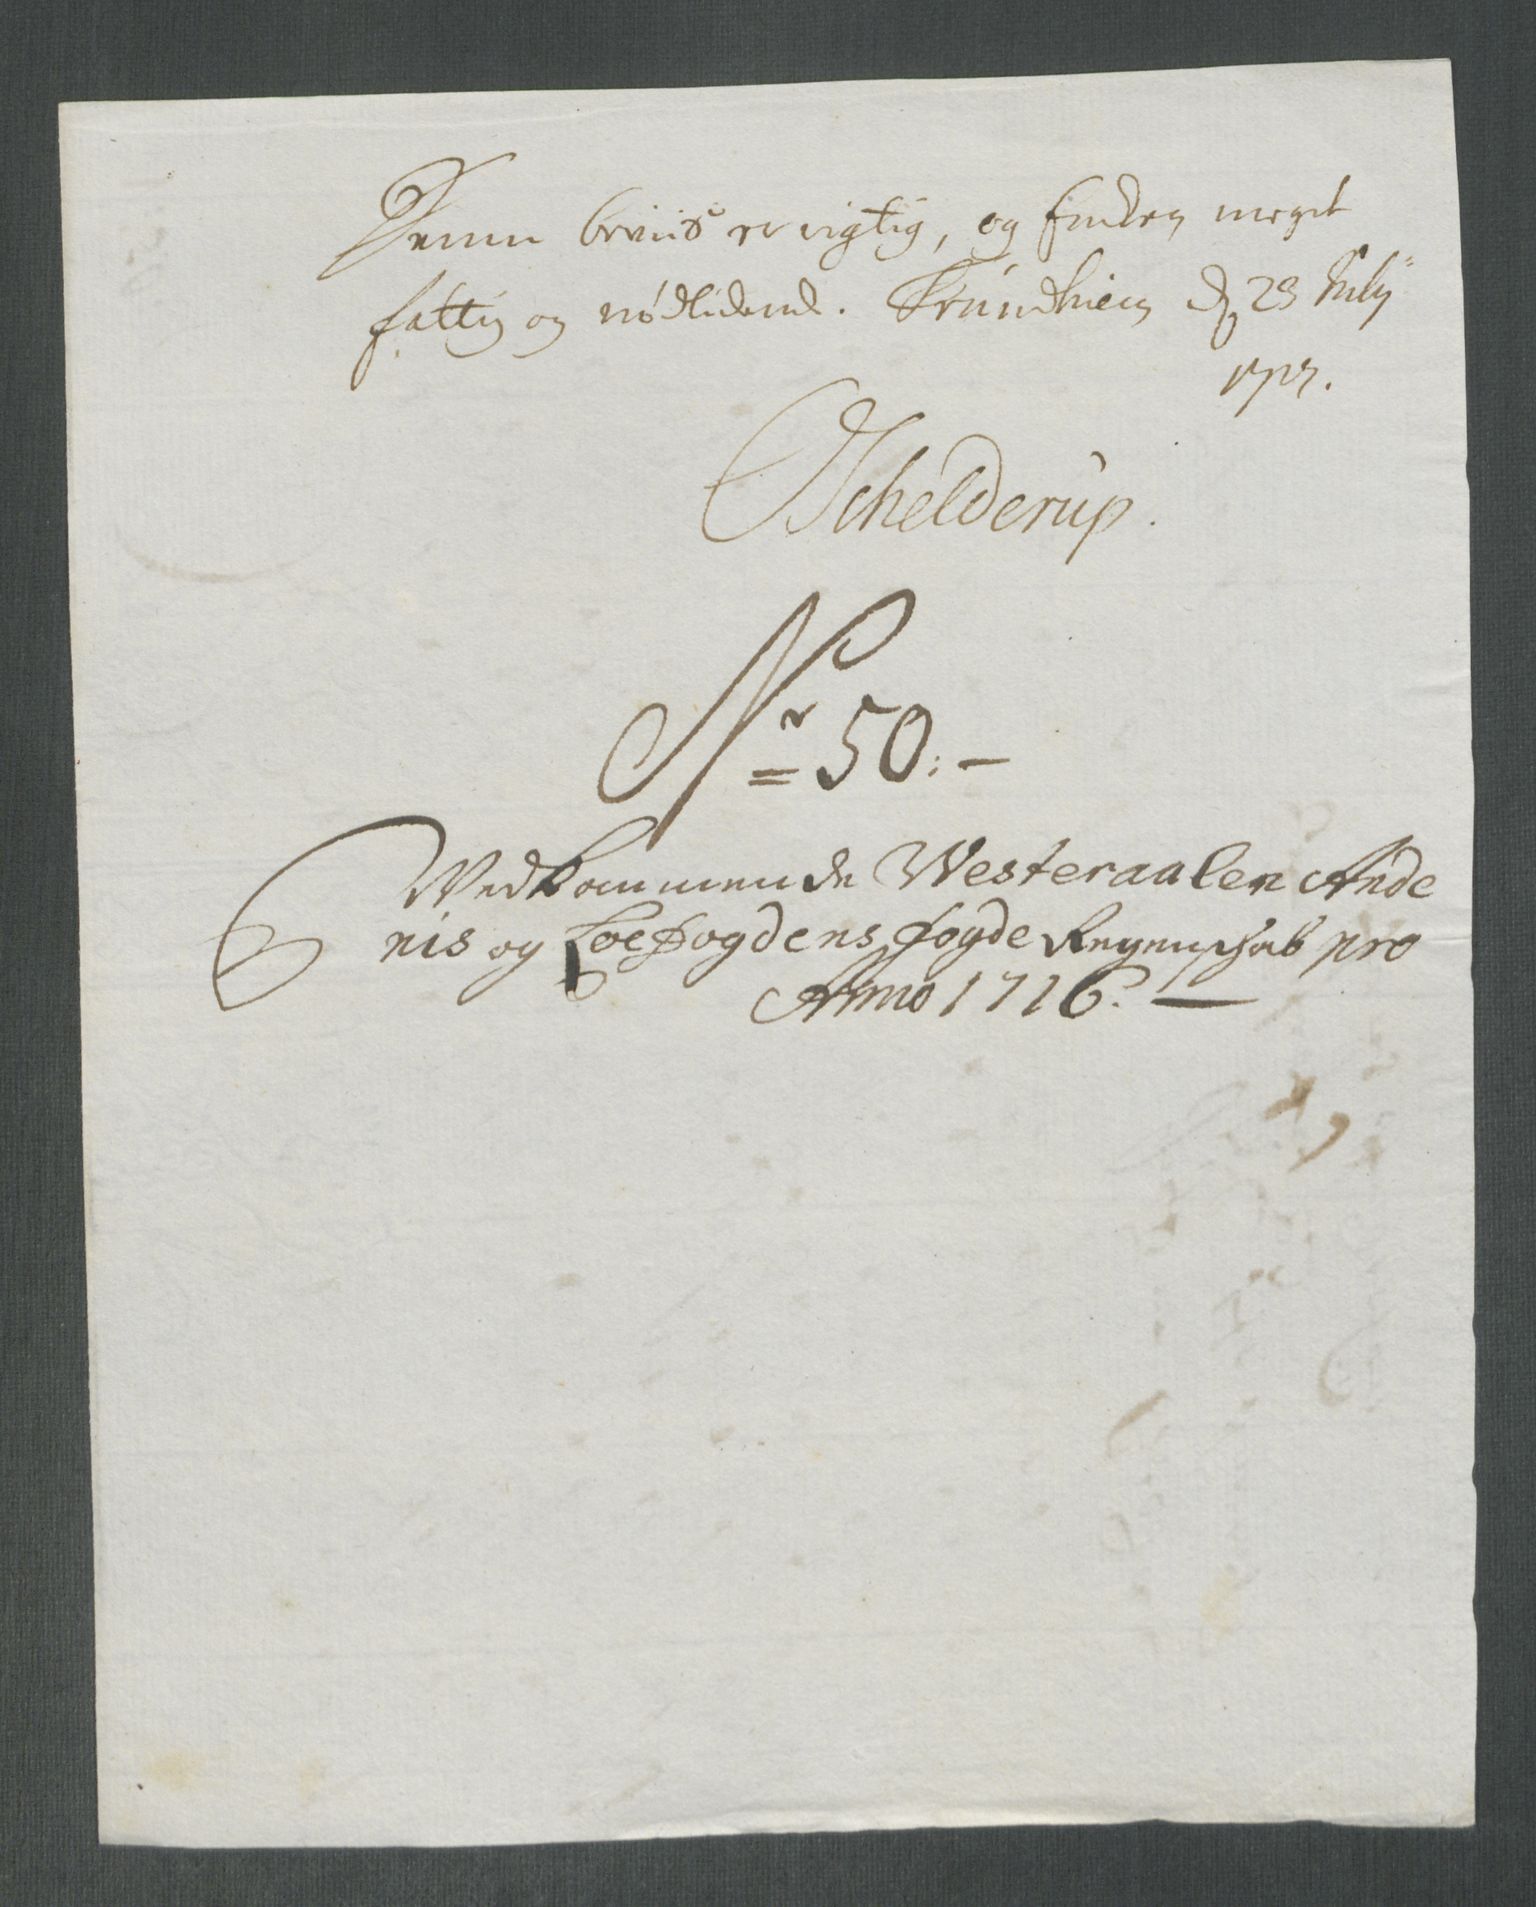 Denne beviis er rigtig, og Enken meget
fattig og nødlidende. Trundhiem d 23 July
1717.
Schelderup.
Nr 50:
Vedkommende Westeraalen Ande
nis og Lofogdens fogde Regenschab pro
Anno 1716.